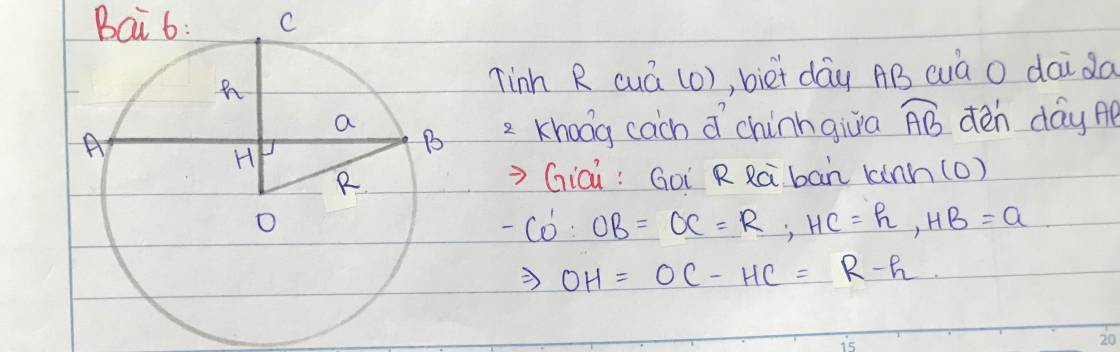 Bài 6:
C
h
a
A
H
B
R
O
Tính R của (O), biết dây AB của O dài 2a
2 khoảg cách đ' chính giữa AB đến dây AB
⇒ Giải: Gọi R là bán kính (O)
- Có: OB = OC = R ; HC = h , HB = a
⇒ OH = OC - HC = R - h.
15
20